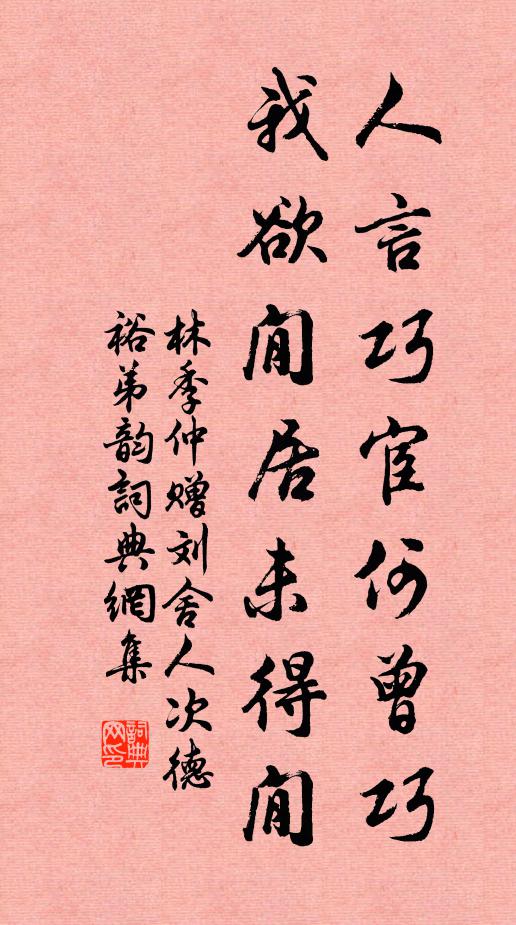 人言巧宦何曾巧
我欲閒居未得閒
林季仲赠刘舍人次德
裕弟韵詞典網集
詞典
网印